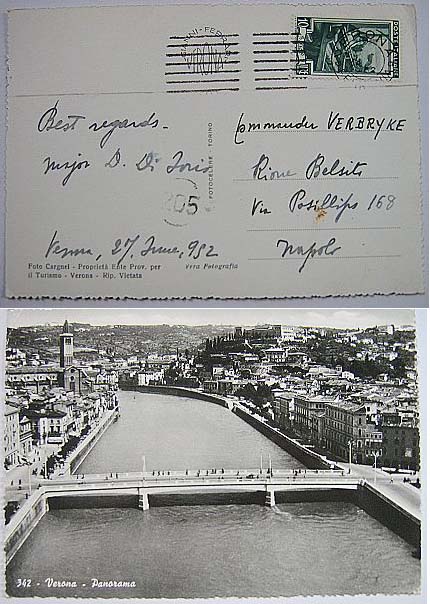 GIANNI - FERRARI
VERONA
Best regards -
Commander VERBRYKE
major D. Di Iorio
Rione Belsito
205
FOTOCELERE TORINO
Via Posillipo 168
Verona, 27 June, 952
Napoli
Foto Cargnel - Proprietà Ente Prov. per
il Turismo - Verona - Rip. Vietata
Vera Fotografia
342 - Verona - Panorama